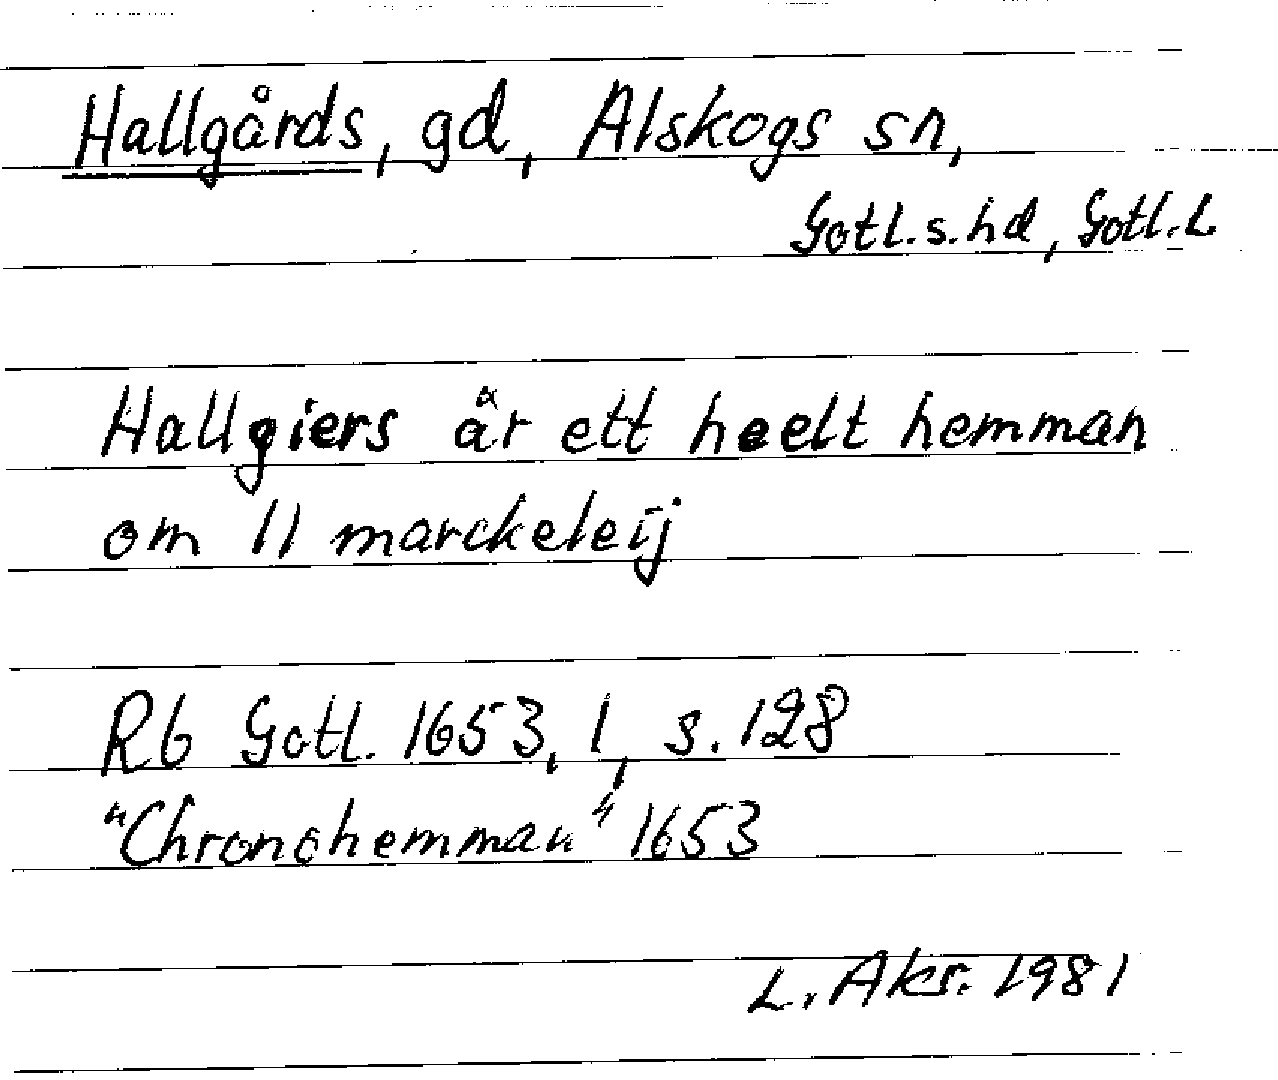 Hallgårds, gd, Alskogs sn,
Gotl.s.hd, Gotl.L
Hallgiers är ett heelt hemman
om 11 marckeleij
Rb Gotl. 1653, 1, s. 128
"Chronohemman" 1653
L. Aks. 1981